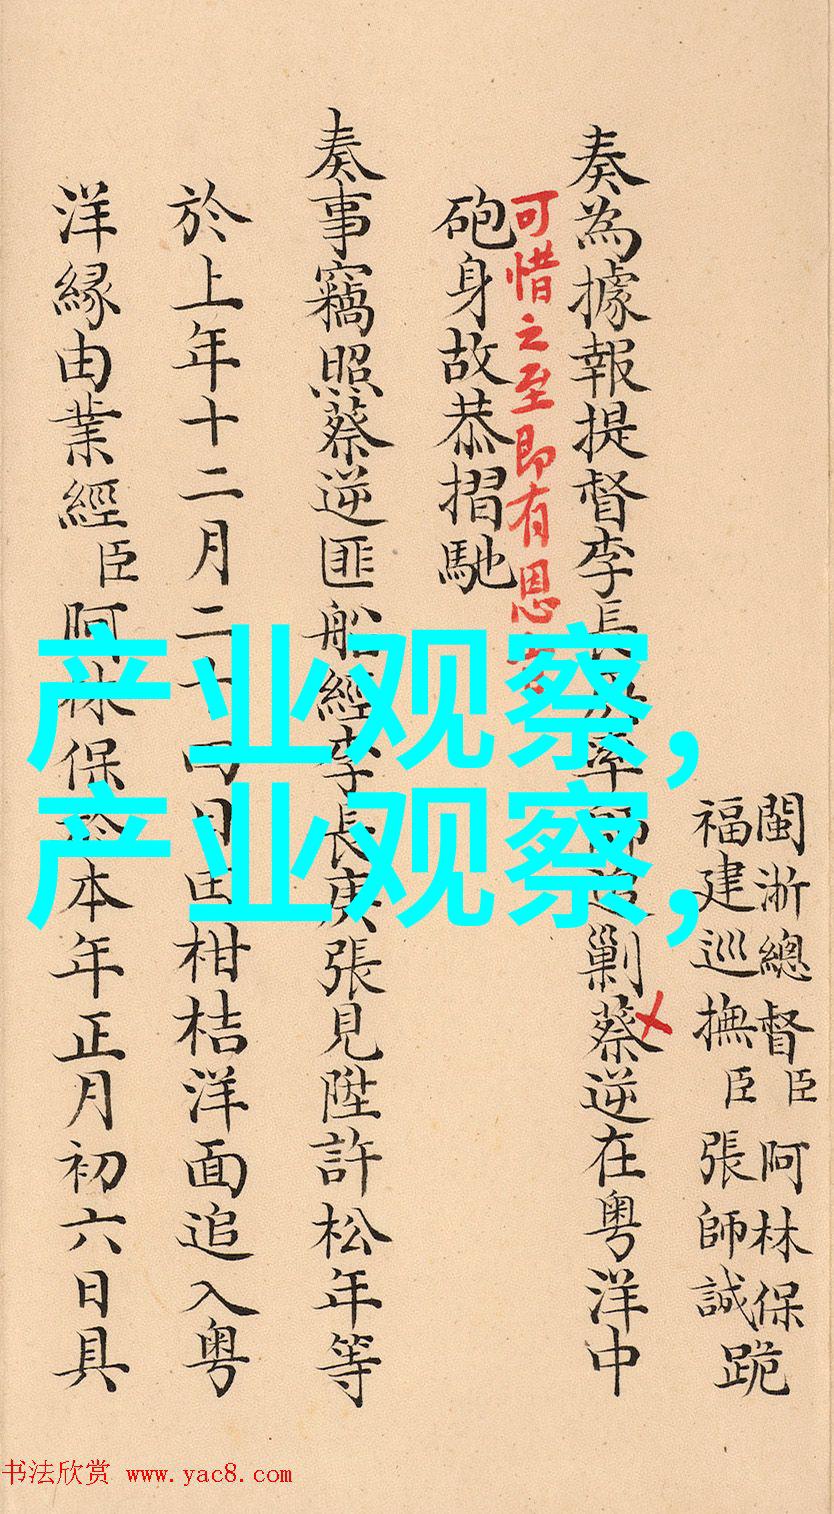 閩浙總督臣阿林保
福建巡撫臣張師誠
跪
奏為據報提督李長率師追剿蔡逆在粤洋中
可惜之至即有恩
砲身故恭摺馳
奏事竊照蔡逆匪船經李長庚張見陞許松年等
於上年十二月二十四日由柑桔洋面追入粤
洋緣由業經臣阿林保於本年正月初六日具
产业观察,
产业观察,
书法欣赏 www.yac8.com